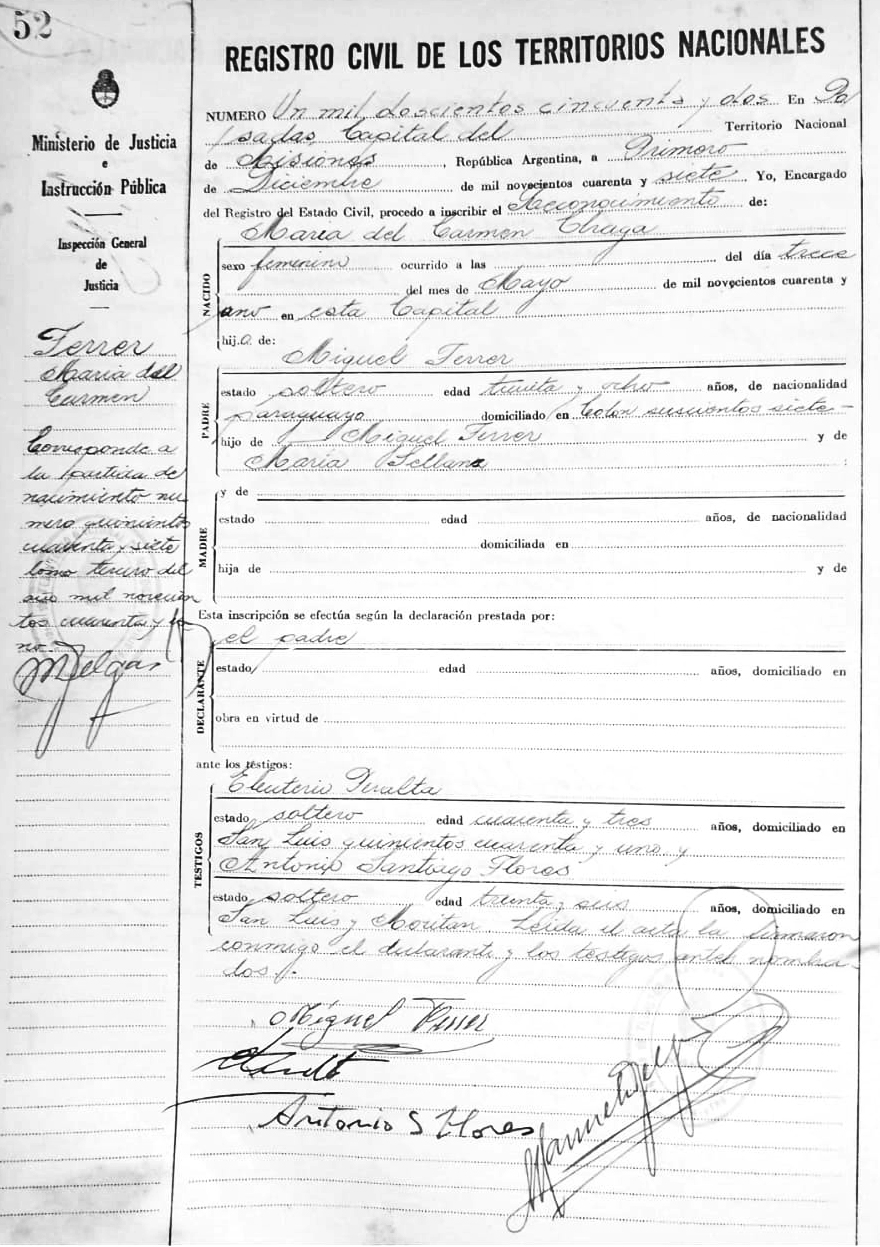 52
REGISTRO CIVIL DE LOS TERRITORIOS NACIONALES
Ministerio de Justicia
e
Instrucción Pública
Inspección General
de
Justicia
Ferrer
Maria del
Carmen
Corresponde a
la partida de
nacimiento nu
mero quinientos
cuarenta y siete
tomo tercero del
año mil novecien
tos cuarenta y u
no.
MDelgar
NUMERO Un mil doscientos cincuenta y dos En Po
sadas, Capital del Territorio Nacional
de Misiones, República Argentina, a Primero
de Diciembre de mil novecientos cuarenta y siete. Yo, Encargado
del Registro del Estado Civil, procedo a inscribir el Reconocimiento de:
Maria del Carmen Chaga
NACIDO
sexo femenino ocurrido a las del día trece
del mes de Mayo de mil novecientos cuarenta y
uno en esta Capital
hij.a de:
Miguel Ferrer
PADRE
estado soltero edad treinta y ocho años, de nacionalidad
paraguayo domiciliado en Colon seiscientos siete-
hijo de Miguel Ferrer y de
Maria
MADRE
y de
estado edad años, de nacionalidad
domiciliada en
hija de y de
Esta inscripción se efectúa según la declaración prestada por:
el padre
DECLARANTE
estado edad años, domiciliado en
obra en virtud de
ante los testigos:
Eleuterio Peralta
TESTIGOS
estado soltero edad cuarenta y tres años, domiciliado en
San Luis quinientos cuarenta y uno y
Antonio Santiago Flores
estado soltero edad treinta y seis años, domiciliado en
San Luis y Moritan. Leida el acta la firmaron
conmigo el declarante y los testigos antes nombra-
dos.
Miguel Ferrer
Antonio S Flores